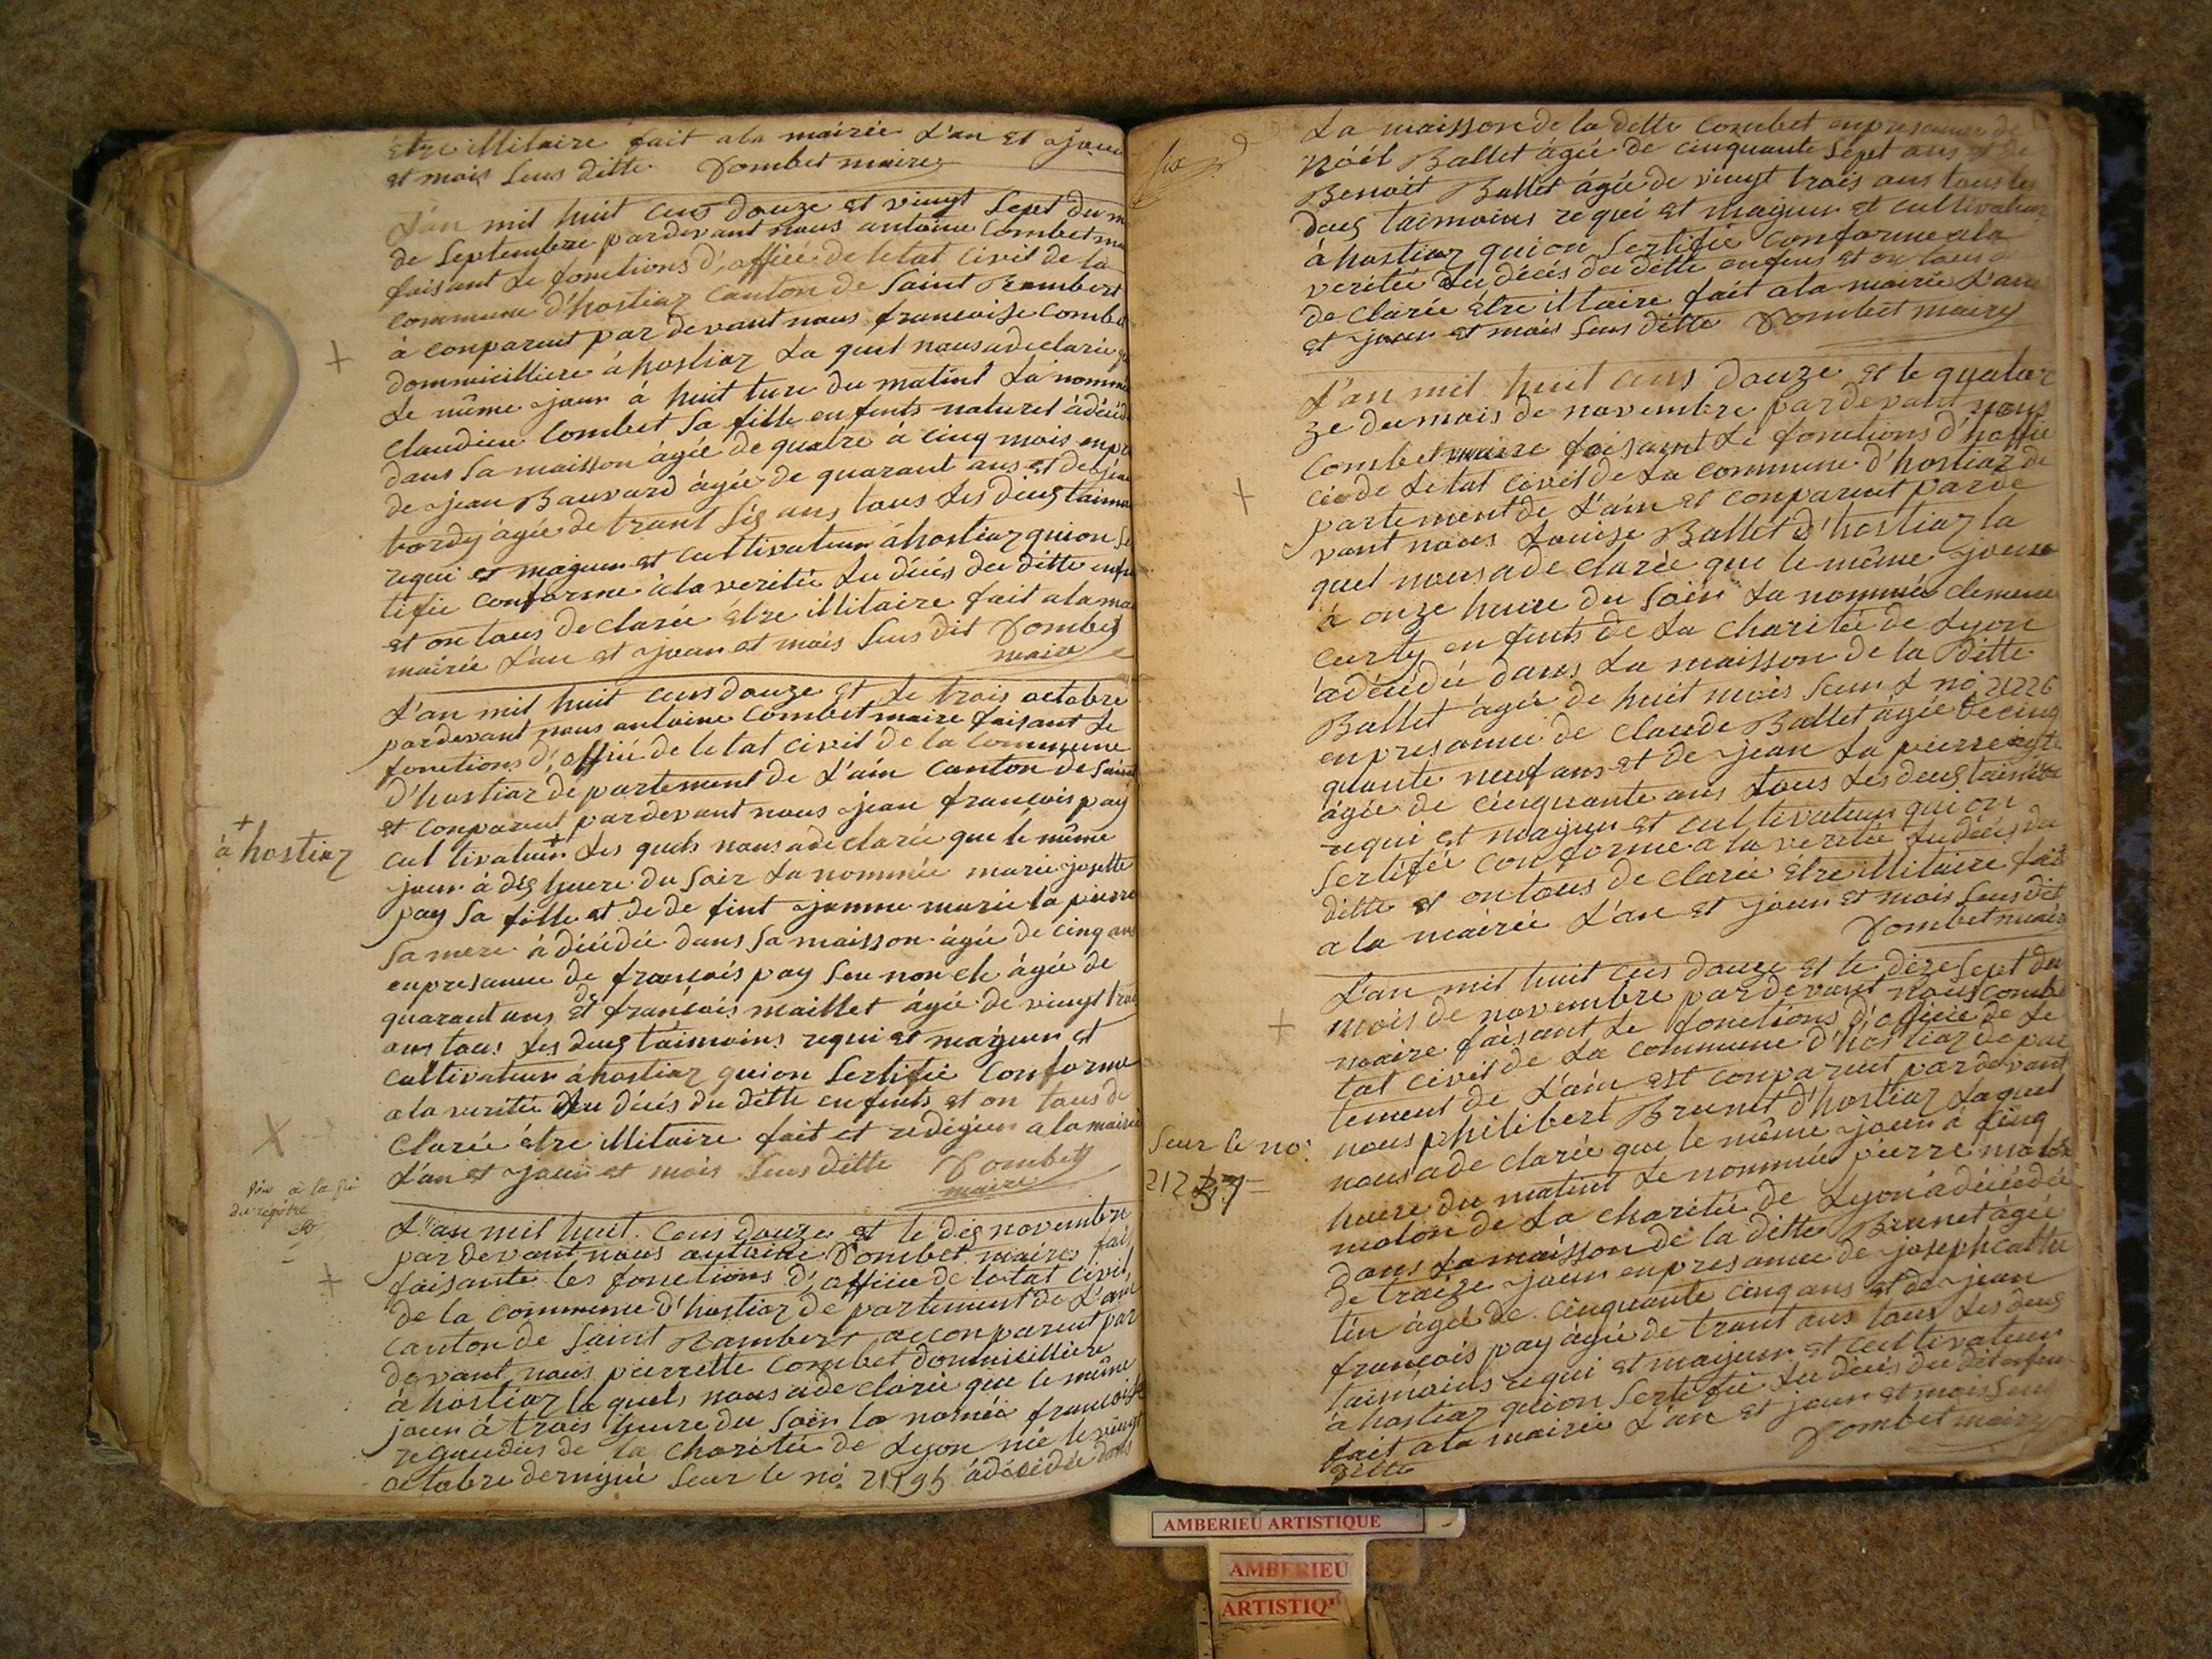 être illitaire fait a la mairie L'an et jour
et mois seus ditte Dombet maire
L'an mil huit cens douze et vingt sept du m
de Septembre pardevant nous antoine Combet ma
faisant Le fonctions d'officié de letat civil de la
commune d'hostiaz canton de Saint Rambert
à conparent par devant nous francoise Combet
dommicilliere à hostiaz La quel nous a declarée q
Le même jour à huit ture du matint La nomme
claudien Combet sa fille enfents naturel à décéd
dans sa maisson âgée de quatre à cinq mois enpr
de jean Bauvard âgée de quarant ans et de jean
tordy âgée de trant sis ans tous les deus taimoi
requi et mageur et cultivateur à hostiaz qui on Se
tifie conforme à la veritée Du décés du ditte enfe
et on tous declarée être illitaire fait a la ma
mairie L'an et jour et mois seus dit Dombet
maire
L'an mil huit cens douze et Le trois octobre
pardevant nous antoine Combet maire faisant Le
fonctions d'offiié de letat civil de la Commune
d'hostiaz departement de L'ain Canton de saint
et conparent pardevant nous jean francois pay
à + hostiaz
cultivateur + Les quels nous a declarée que le même
jour à dis heure du soir La nommée marie josette
pay sa fille et de de fint jeanne marie la pierre
sa mere à décédée dans sa maisson âgée de cinq ans
enpresance de francois pay seu non cle âgée de
quarant ans et de francois maillet âgée de vingt trois
ans tous Les deus taimoins requi et mageur et
cultivateur à hostiaz qui on Sertifie Conforme
a la veritée Du décés du ditte enfents et on tous de
clarée être illitaire fait et redigieu a la mairie
L'an et jour et mois seus ditte Dombet
maire
du registre
L'an mil huit cens douze et le dis novembre
par devant nous antoine Dombet maire fai
faisante les fonctions d'officie de letat civil
de la commune d'hostiaz departement de L'ain
canton de Saint Rambert, a conparent par
devant nous pierrette Combet dommicilliere
à hostiaz laquels nous a declarée que le même
jour à trois heure du soir la nomée francoise
regaudies de la charitée de Lyon née le vingt
octobre dernyée seur le nó. 21195 à décédée dans
La maisson de la ditte Combet enpresance de
Nóél Ballet âgée de cinquante sept ans et de
Benoit Ballet âgée de vingt trois ans tous les
deus taimoins requi et mageur et cultivateur
à hostiaz qui on Sertifie Conforme a la
veritée Du décés du ditte enfens et on tous
declarée être illtaire fait a la mairie L'an
et jour et mois seus ditte Dombet maire
L'an mil huit cens douze et le quator
ze du mois de novembre pardevant nous
Combet maire faisant Le fonctions d'hoffic
cié de Létat civil de La commune d'hostiaz de
partement de L'ain et conparent parde
vant nous Louise Ballet d'hostiaz la
quel nous a declarée que le même jour
à onze heure du soir La nommée clemence
curty enfents de La charitée de Lyon
à décédée dans La maisson de la ditte
Ballet âgée de huit mois seur L nó 21226
enpresance de claude Ballet âgée de cinq
quante neuf ans et de jean La pierre
âgée de cinquante ans tous Les deus taimoi
requi et mageur et cultivateur qui on
Sertifée conforme a la veritée Du décés du
ditte et on tous declarée être illitaire fait
a la mairie L'an et jour et mois seus dit
Dombet maire
L'an mil huit cens douze et le dixe sept du
mois de novembre pardevant nous Combe
maire faisant Le fonctions d'officié de Le
tat civil de La commune d'hostiaz depar
tement de L'ain est conparent pardevant
seur le nó:
nous philibert Brunet d'hostiaz Laquel
nous a declarée que le même jour à cinq
212 37
heure du matint Le nommée pierre malo
molon de La charitée de Lyon à décédée
dans La maisson de la ditte Brunet âgée
de traize jour enpresance de joseph catte
tin âgée de cinquante cinq ans et de jean
francois pay âgée de trant ans tous Les deus
taimoins requi et mageur et cultivateur
à hostiaz qui on Sertifie Du décés du dit enfen
fait a la mairie L'an et jour et mois seu
ditte Dombet maire
AMBERIEU ARTISTIQUE
AMBERIEU
ARTISTIQ